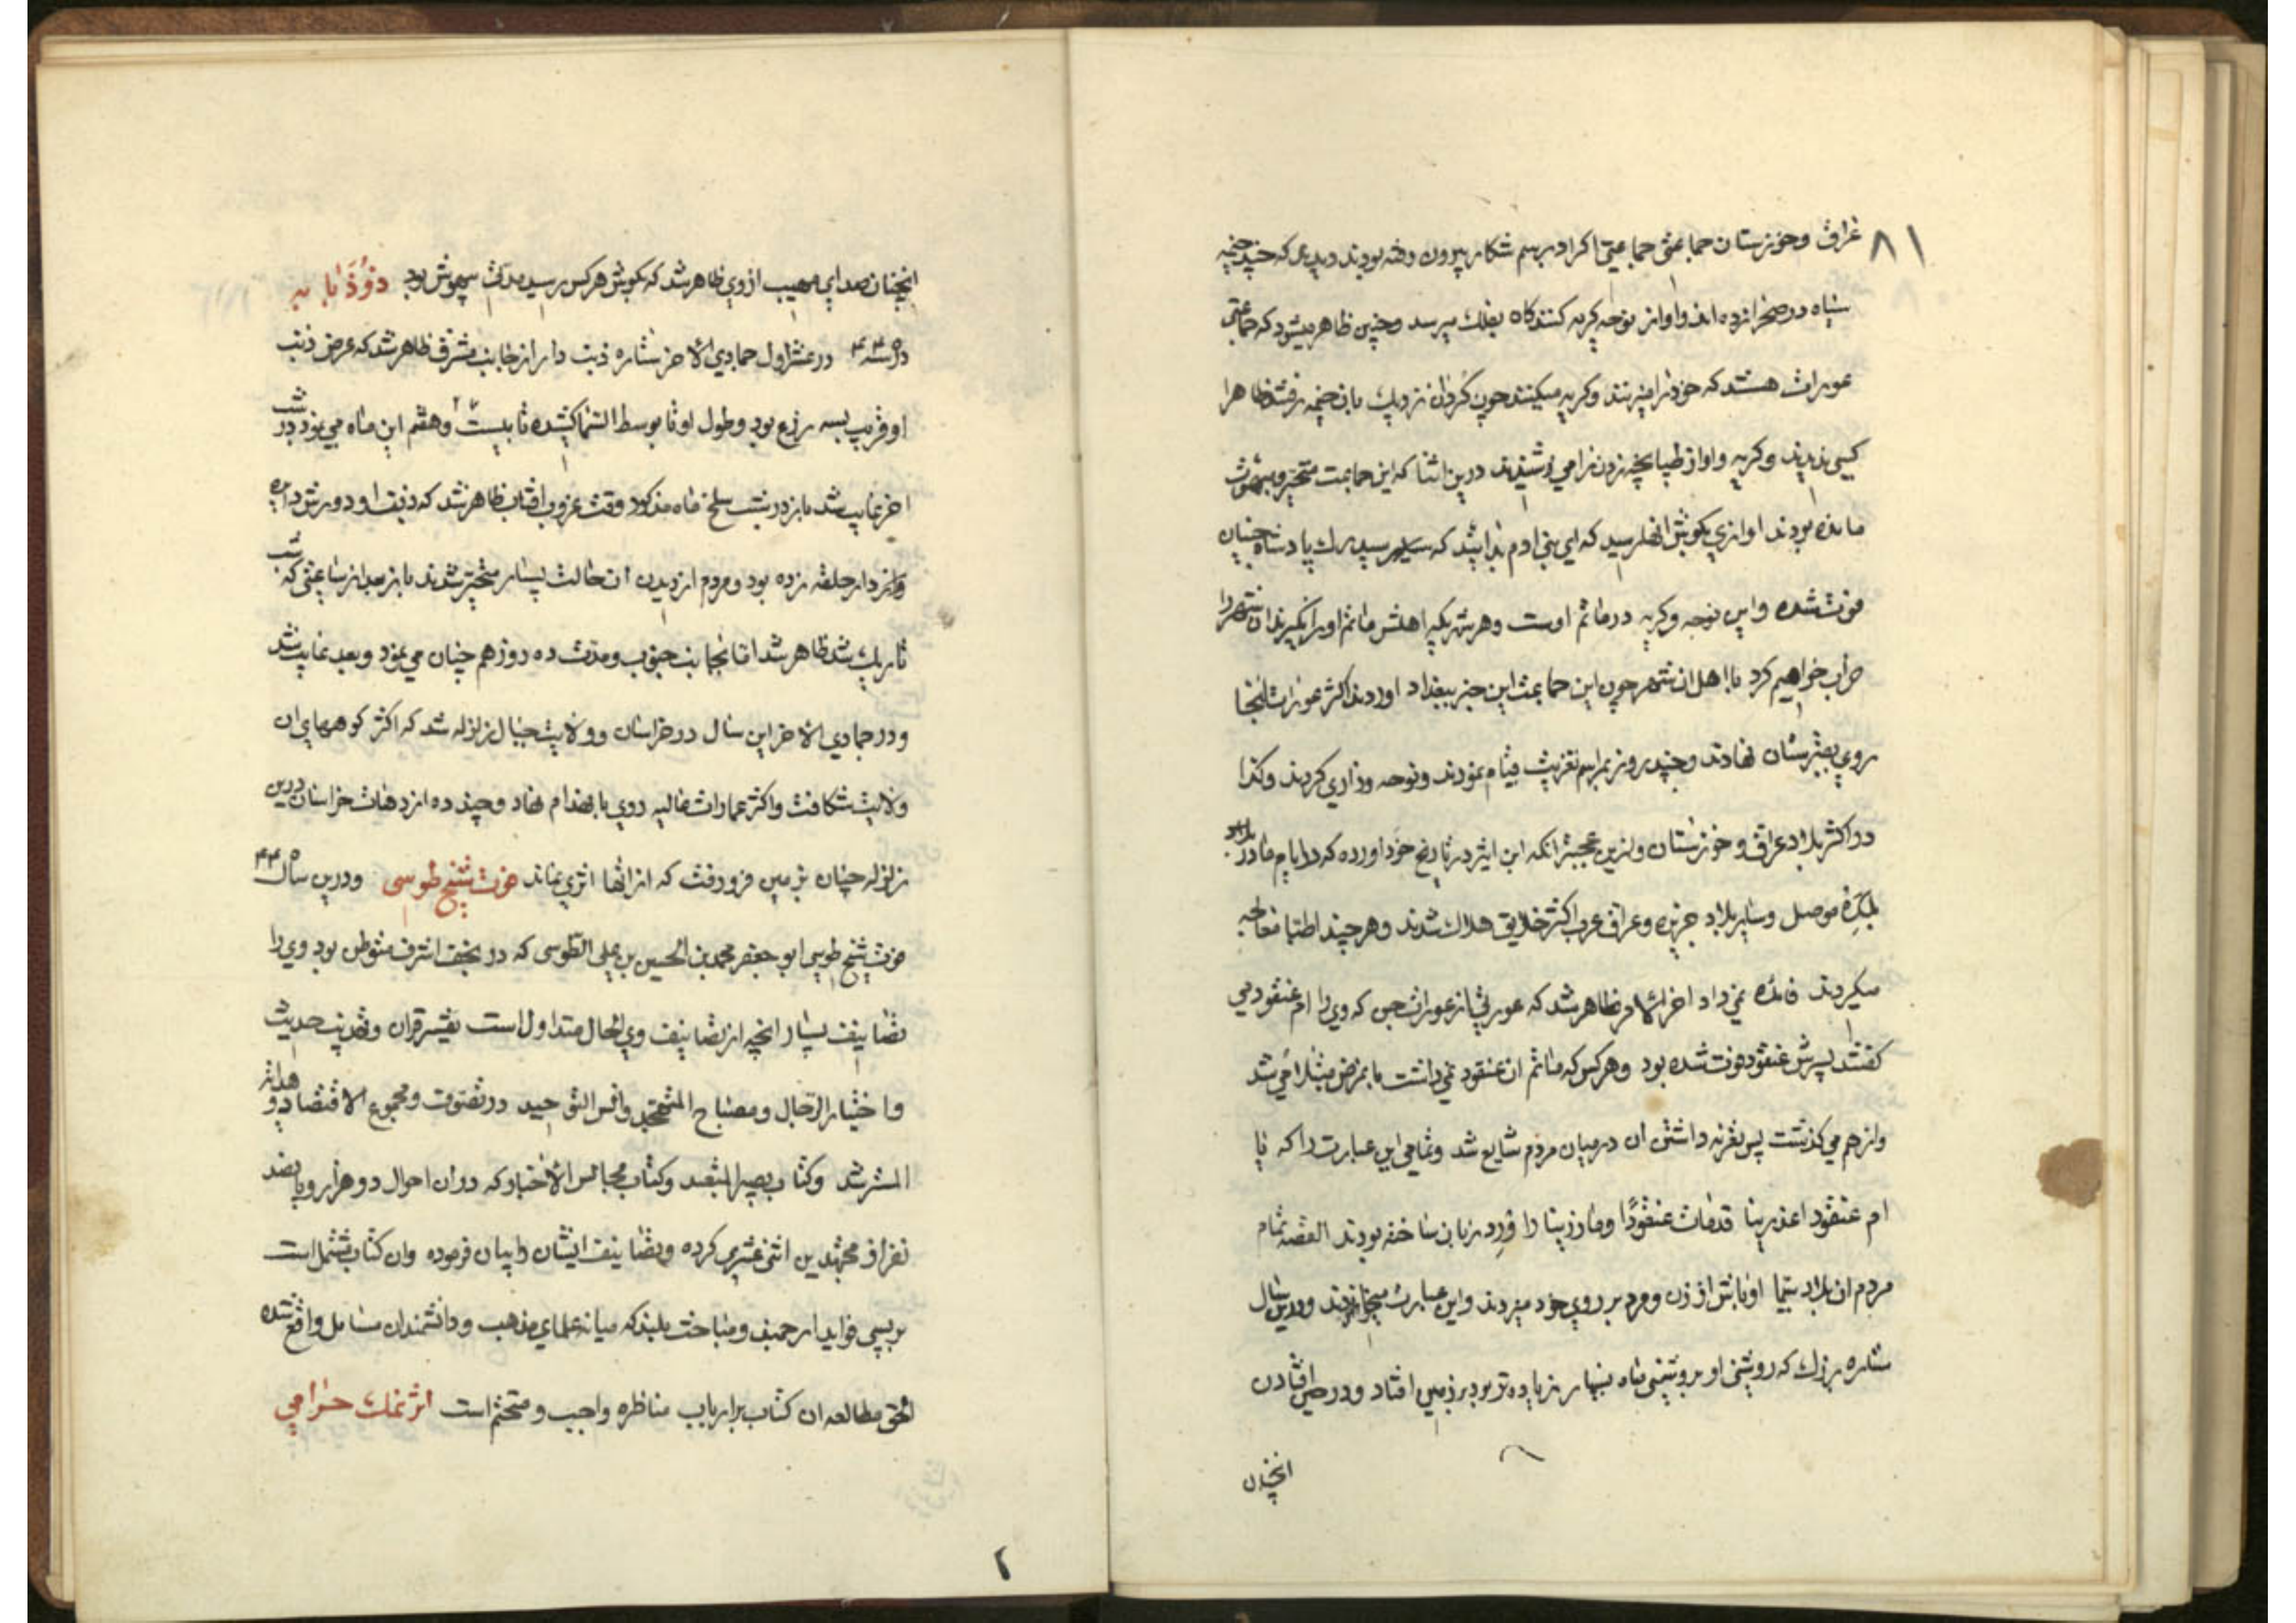 ۸۱
عراق وخوزستان جماعتی جماعتی اکراد برسم شکار بیرون رفته بودند دیدند که چند خیمه
سیاه در صحرا زده اند واواز نوحه کریه کنندکاه بفلك میرسد وچنین ظاهر میشود که جماعتی
عورات هستند که خود را میزنند وکریه میکنند چون کردان نزدیك بان خیمه رفتند ظاهرا
کسی ندیدند وکریه واواز طپانچه زدن را می شنیدند درین اثنا که این جماعت متحیر وبیهوش
مانده بودند اوازی بکوش انها رسید که ای بنی ادم بدانید که سیدرك پادشاه جنیان
فوت شده واین نوحه وکریه در ماتم اوست وهر شهریکه اهلش ماتم او را نکیرند ان شهر را
خراب خواهیم کرد با اهل ان شهر چون این جماعت این خبر ببغداد اوردند اکثر عورات انجا
روی بقبرستان نهادند وچند روز بمراسم تعزیت قیام نمودند ونوحه وزاری کردند وکذا
در اکثر بلاد عراق وخوزستان وازین عجبتر انکه ابن اثیر در تاریخ خود اورده که در ایام ما در بلاد
موصل وسایر بلاد جزیره وعراق عرب اکثر خلایق هلاك شدند وهرچند اطبا معالجه
میکردند فائده نمی داد اخر الامر ظاهر شد که عورتی از عورات جن که وی را ام عنقود می
کفتند پسرش عنقود فوت شده بود وهر کس که ماتم ان عنقود نمی داشت بان مرض مبتلا می شد
واز هم می کذشت پس تعزیه داشتن ان در میان مردم شایع شد وتمامی این عبارت را که یا
ام عنقود اعذرینا قدمات عنقودًا وما درینا را ورد زبان ساخته بودند القصه تمام
مردم ان بلاد سیما اوباش از زن ومرد بر روی خود میزدند واین عبارت میخواندند ودرین سال
ستاره بزرك که روشنی او بروشنی ماه بسیار زیاده تر بود بر زمین افتاد ودر حین افتادن
انچنان
انچنان صدای مهیب از وی ظاهر شد که بکوش هر کس رسید مدتی بیهوش بود
در سنه ۴۴۵ در عشر اول جمادی الاخر ستاره ذنب دار از جانب مشرق ظاهر شد که عرض ذنب
او قریب بسه زرع بود وطول او تا بوسط السما کشیده تا بیست وهفتم این ماه می نمود در شب
اخر غایب شد باز در شب سلخ ماه مذکور وقت غروب افتاب ظاهر شد که ذنب او دورش دایره
وار دار حلقه زده بود ومردم از دیدن ان حالت بسیار متحیر شدند باز بعد از ساعتی که شب
تاریك شد ظاهر شد اما بجانب جنوب ومدت ده روز هم چنان می نمود وبعد غایب شد
ودر جمادی الاخر این سال در خراسان وولایت جبال زلزله شد که اکثر کوههای ان
ولایت شکافت واکثر عمارات عالیه روی بانهدام نهاد وچند ده از دهات خراسان درین
زلزله چنان بزمین فرو رفت که از انها اثری نماند فوت شیخ طوسی ودرین سال ۴۴۵
فوت شیخ طوسی ابو جعفر محمد بن الحسین بن علی الطوسی که در نجف اشرف متوطن بود وی را
تصانیف بسیار انچه از تصانیف وی الحال متداول است تفسیر قران وتهذیب حدیث
واختیار الرجال ومصباح المتهجد وانس التوحید در تصوف ومجموع الاقتصاد وهدایة
المسترشد وکتاب بصیر المتعبد وکتاب مجالس الاخبار که در ان احوال دو هزار وپانصد
نفر از مجتهدین اثنی عشری کرده وتصانیف ایشان را بیان فرموده وان کتاب مشتمل است
بر بسی فواید ارجمند ومباحث بلند که میانه علمای مذهب ودانشمندان مسایل واقع شده
الحق مطالعه ان کتاب بر ارباب مناظره واجب ومتحتم است اثر نمك حرامی